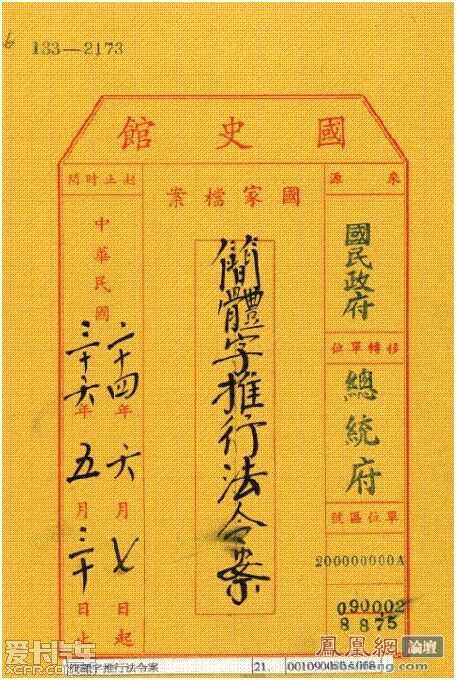 133—2173
國史館
來源
國民政府
移轉單位
總統府
單位區號
200000000A
090002
8875
國家檔案
簡體字推行法令案
起止時間
中華民國
二十四年六月七日起
三十六年五月三十日止
字推行法令案
21.
鳳凰網 論壇
爱卡汽车